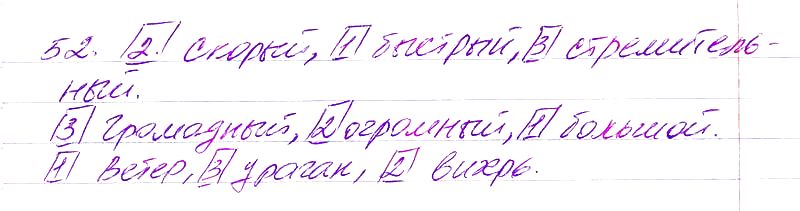 52. 2 скорый, 1 быстрый, 3 стремитель-
ный.
3 громадный, 2 огромный, 1 большой.
1 ветер, 3 ураган, 2 вихрь.